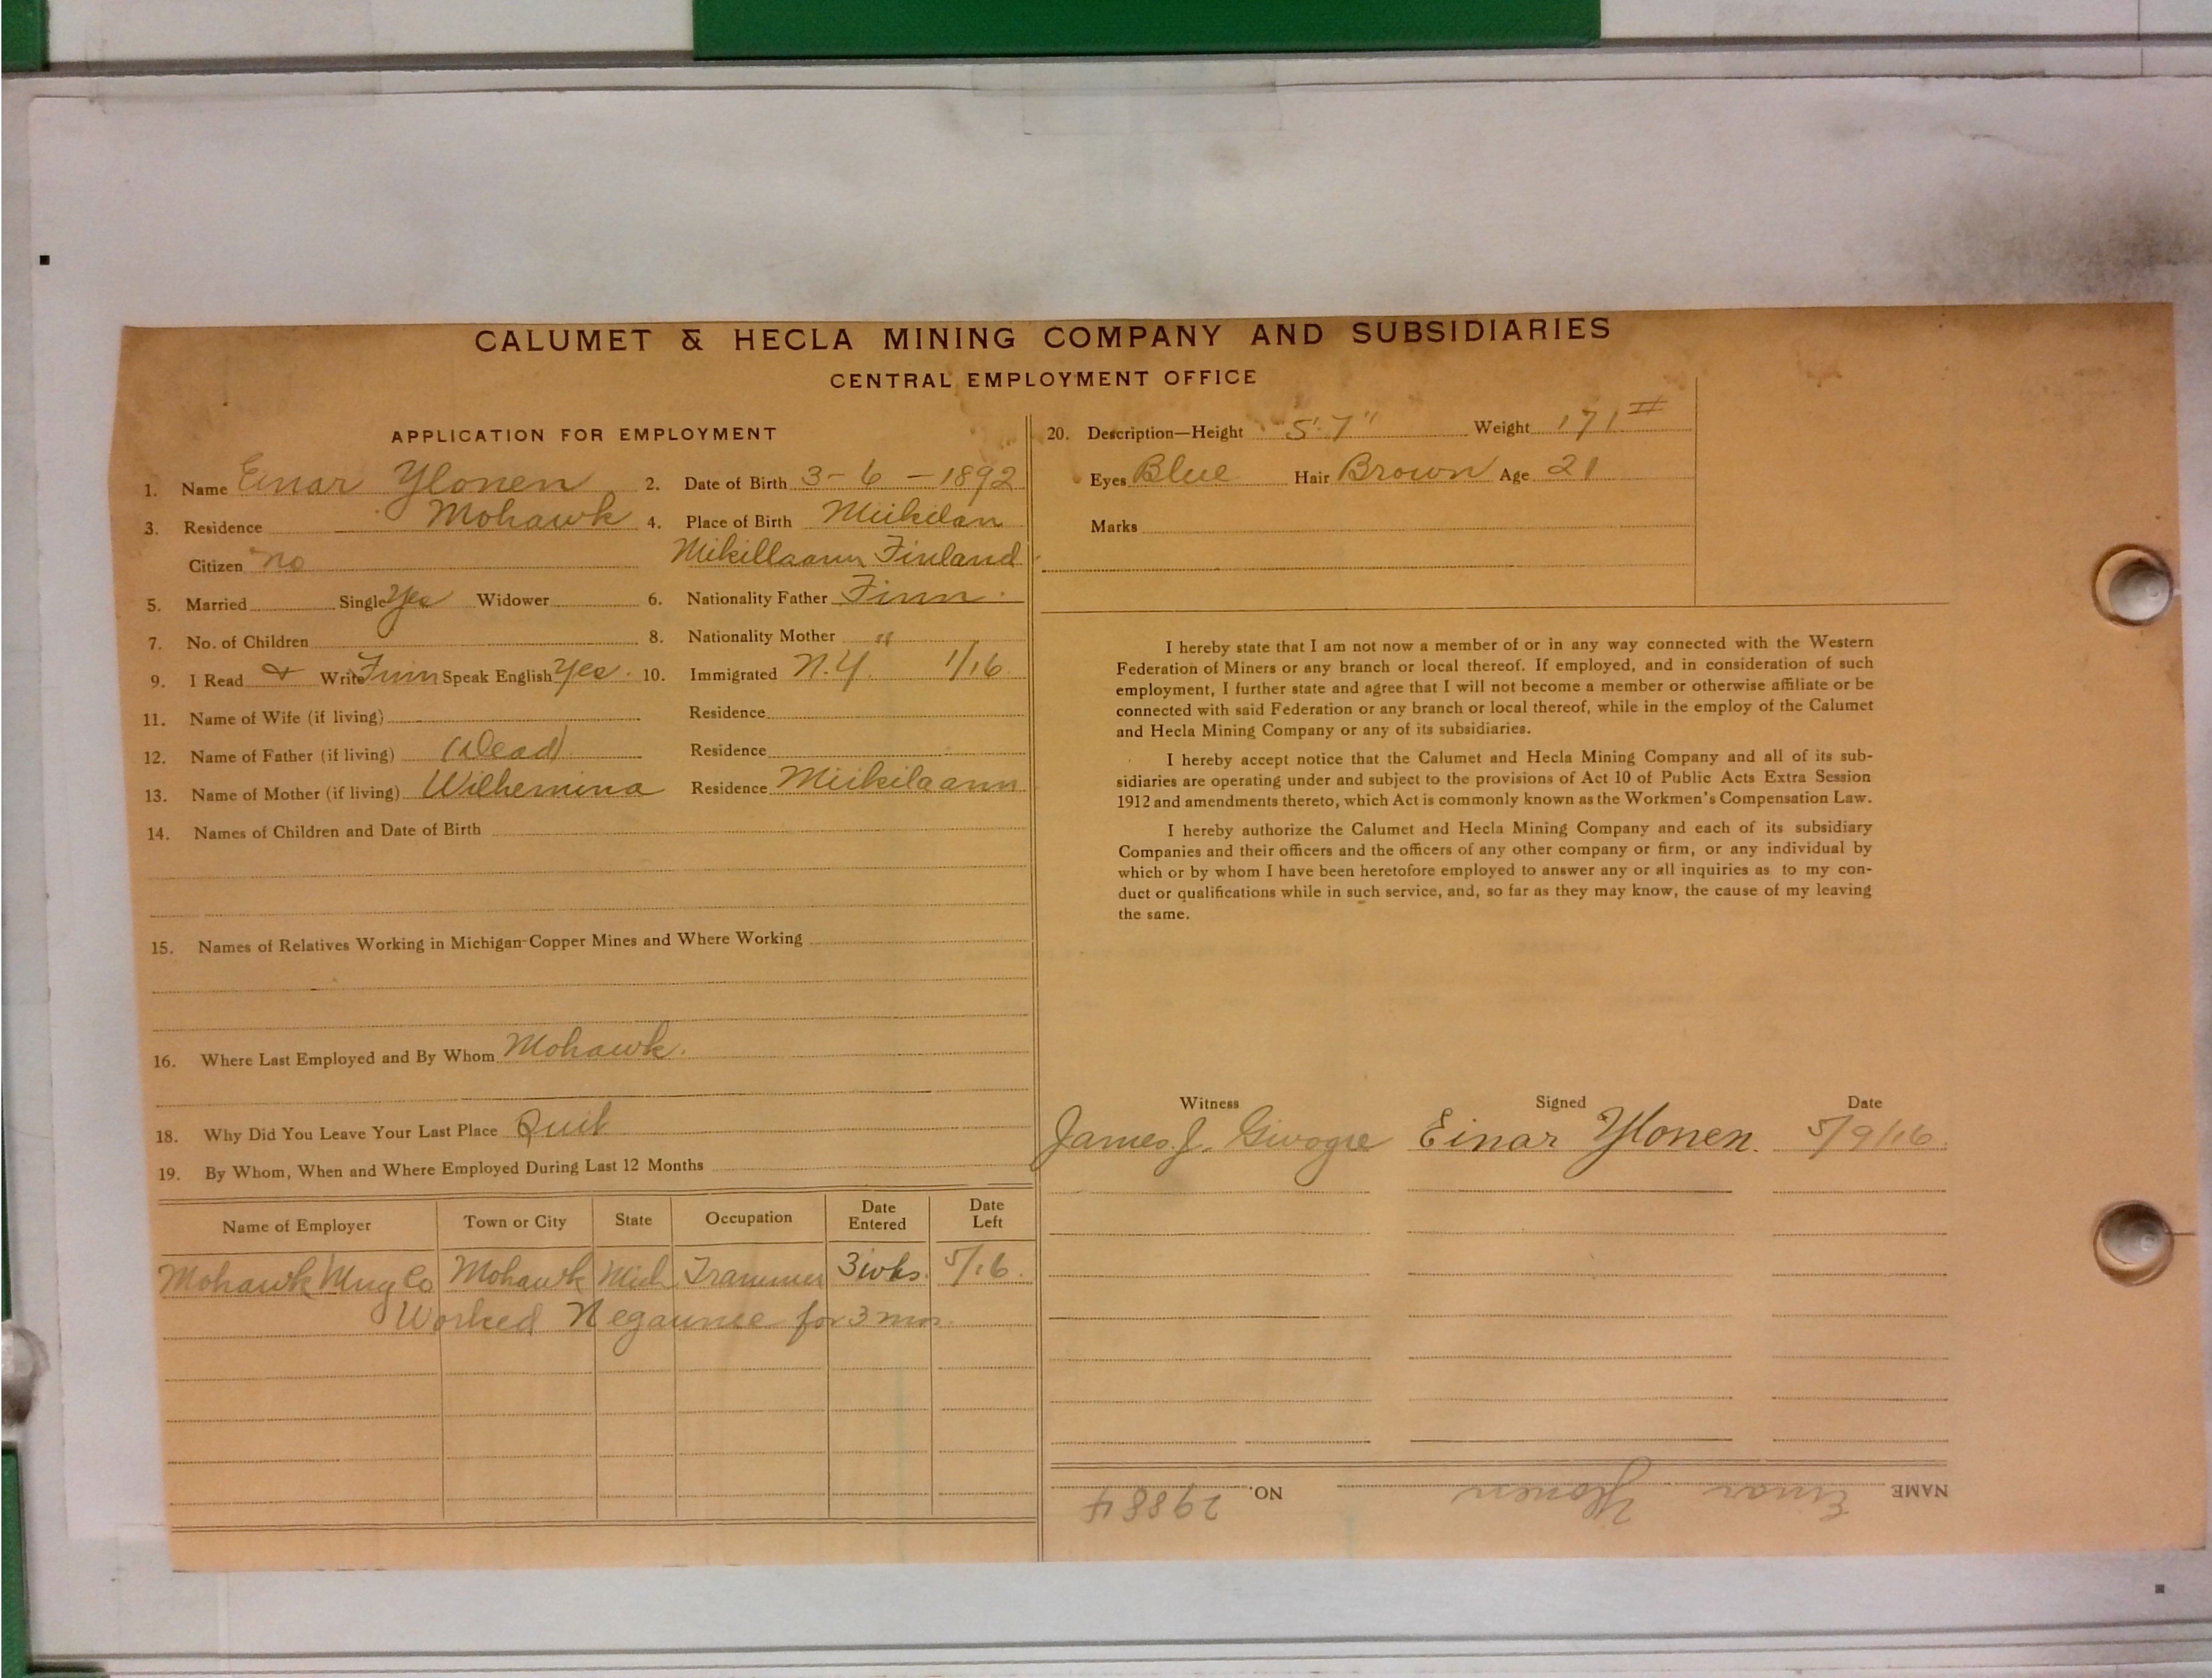 CALUMET & HECLA MINING COMPANY AND SUBSIDIARIES
CENTRAL EMPLOYMENT OFFICE
APPLICATION FOR EMPLOYMENT
1. Name Einar Ylonen 2. Date of Birth 3-6-1892
3. Residence Mohawk 4. Place of Birth Miikilan
Citizen no Mikillaann Finland
5. Married Single Yes Widower 6. Nationality Father Finn
7. No. of Children 8. Nationality Mother "
9. I Read & Write Finn Speak English Yes. 10. Immigrated N.Y. 1/16
11. Name of Wife (if living) Residence
12. Name of Father (if living) (Dead) Residence
13. Name of Mother (if living) Wilhemina Residence Miikilaann
14. Names of Children and Date of Birth
15. Names of Relatives Working in Michigan Copper Mines and Where Working
16. Where Last Employed and By Whom Mohawk.
18. Why Did You Leave Your Last Place Quit
19. By Whom, When and Where Employed During Last 12 Months
Name of Employer Town or City State Occupation Date Entered Date Left
Mohawk Mng Co Mohawk Mich Trammer 3 wks. 5/16.
Worked Negaunee for 3 mos.
20. Description—Height 5'7" Weight 171#
Eyes Blue Hair Brown Age 21
Marks
I hereby state that I am not now a member of or in any way connected with the Western
Federation of Miners or any branch or local thereof. If employed, and in consideration of such
employment, I further state and agree that I will not become a member or otherwise affiliate or be
connected with said Federation or any branch or local thereof, while in the employ of the Calumet
and Hecla Mining Company or any of its subsidiaries.
I hereby accept notice that the Calumet and Hecla Mining Company and all of its sub-
sidiaries are operating under and subject to the provisions of Act 10 of Public Acts Extra Session
1912 and amendments thereto, which Act is commonly known as the Workmen's Compensation Law.
I hereby authorize the Calumet and Hecla Mining Company and each of its subsidiary
Companies and their officers and the officers of any other company or firm, or any individual by
which or by whom I have been heretofore employed to answer any or all inquiries as to my con-
duct or qualifications while in such service, and, so far as they may know, the cause of my leaving
the same.
Witness Signed Date
James J. Einar Ylonen. 5/9/16.
NAME Einar Ylonen NO. 29884